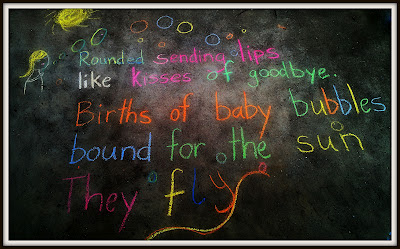 Rounded sending lips
like kisses of goodbye.
Births of baby bubbles
bound for the sun
They fly